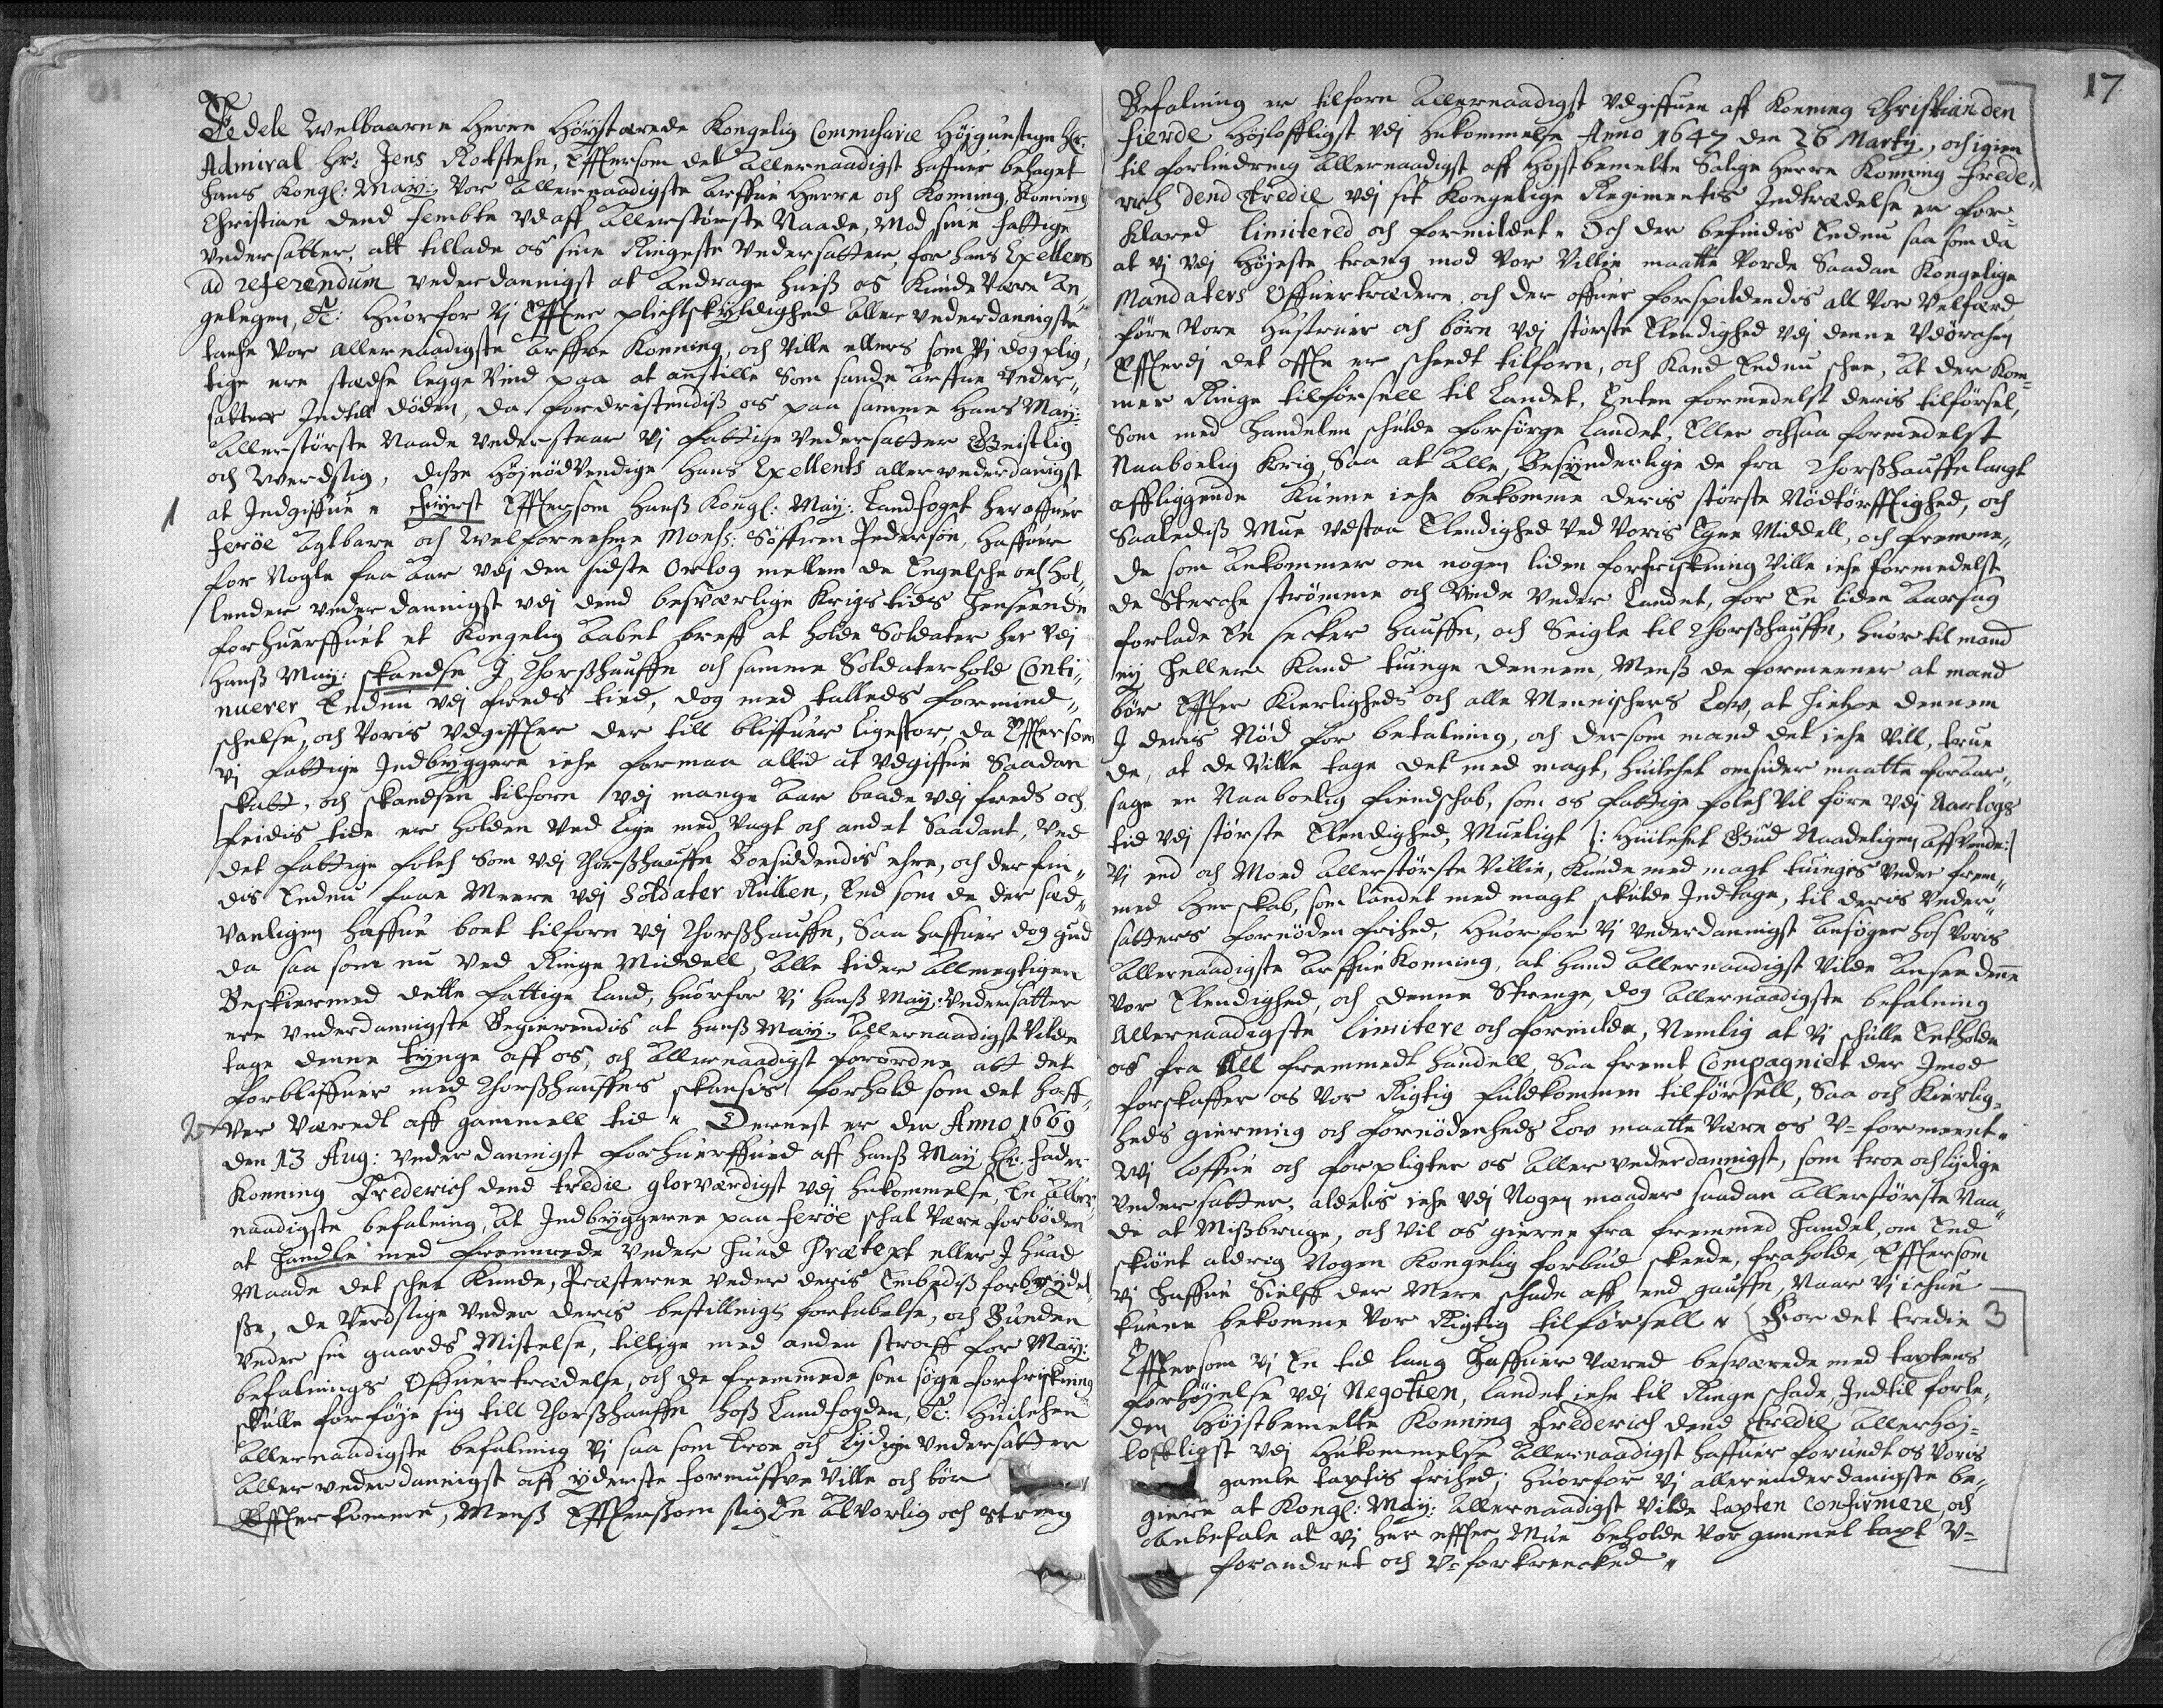 Eedele Welbaarne Herre Høystærede Kongelig Commisarie Højgunstige Hr:
Admiral Hr: Jens Rotstehn, Effter som det Allernaadigst haffuer behaget
Hans Kongl: May:, Vor Allernaadigste Arffue Herre och Konning, Koning
Christian dend Fembte Ud aff Allerstørste Naade, Mod sine fattige
Undersatter, att tillade os sine Ringeste Undersatter, for hans Exellents
ad referendum Underdannigst at Andrage hueß os Kunde Være An„
gelegen, &c: Huorfor Vi Effter plichtskyldighed Aller underdannigste
tache Vor allernaadigste Arffve Konning, och Ville ellers som Vi dog plig„
tige ere stædse legge Vind paa at anstille Som sande Arffue Under„
satter Indtill døden, da fordristendiß os paa samme Hans May:
Allerstørste Naade Understaar Vi fattige Undersatter Geistlig
och Werdslig, disse Højnødvendige Hans Exellents allerunderdanigst
1 at Indgiffue „ Føyerst Effter som Hanß Kongl: May: Landfoget her offuer
Ferøe Agtbare och Welfornehme Mons: Søffren Pedersøn, Haffuer
for Nogle faa Aar Vdj den sidste Orlog mellem de Engelsche och Hol„
lender Underdannigst Vdj dend besværlige Krigs tids Henseende
forhuerffuet et Kongelig Aabet breff at holde Soldater her Vdj
Hanß May: skandse J Thorßhauffn och samme Soldater hold Conti„
nuerer Endnu Vdj freds tied, dog med talleds formind„
schelse, och Voris Udgiffter der till bliffuer ligestor, da Effter som
Vj fattige Indbyggere iche formaa altid at Udgiffue Saadan
skatt, och skandsen tilforn Vdj mange Aar baade Vdj freds och
feidis tide er holden Ved Lige med Vagt och andet Saadant, Ved
det fattige folch Som Vdj Thorßhauffn Boesiddendis ehre, och der fin„
dis Endnu faae Meere Vdj Soldater Rullen, End som de der sæd„
vanligen haffue boet tilforn Vdj Thorßhauffn, Saa haffuer dog gud
da saa som nu Ved Ringe Middell, Alle tider Allmegtigen
Beskiermed dette fattige land, huorfor Vi Hanß May: Undersatter
ere Underdannigste Begierendis at Hanß May: Allernaadigst Vilde
tage denne tynge aff os, och Allernaadigst forordne att det
forbliffuer med Thorßhauffns skansis forhold som det haff„
2 Ver Været aff gammell tid „ Dernest er der Anno 1669
den 13 Aug: Underdannigst forhuerffued aff Hanß May Hr: Fader
Konning Frederich dend tredie glorværdigst Vdj hukommelse, En Aller„
naadigste befalning, At Indbyggerne paa Ferøe schal Være forbøden
at Handle med fremmede Under huad Prætext eller J huad
Maade det schee Kunde, Præsterne Under deris Embediß forbrydel„
ße, de Verdslige Under deris bestillings fortabelse, och Bunden
Under sin gaards Mistelse, tillige med anden straff for May:
befalnings Offuertrædelse, och de fremmede som søge forfriskning
skulle forføje sig till Thorßhauffn hoß Landfogden, &c: Huilchen
Allernaadigste befalning Vj saa som troe och lydige Undersatter
Aller underdannigst aff yderste formuffve Ville och bør
Effterkomme, Menß Effterßom slig En Alvorlig och streng
17
Befalning er tilforn Allernaadigst Udgiffuen aff Konning Christian den
Fierde Højloffligst Vdj hukommelse Anno 1647 den 26 Marty, och igien
til forlindring Allernaadigst aff Højstbemelte Salige Herre Konning Frede„
rich dend Tredie Vdj sit Kongelige Regimentis Indtrædelse er for„
klared Limitered och formildet „ Och der befindis Endnu saa som da
at Vj Vdj Højeste trang mod Vor Villie maatte Vorde Saadan Kongelige
Mandaters Offuertrædere, och der offuer forspildendis all Vor Velfærd
føre Vore Hustruer och børn Vdj største Elendighed Vdj denne Udørchen
Effterdj det offte er scheedt tilforn, och Kand Endnu schee, At der Kom„
mer Ringe tilførsell til Landet, Enten formedelst deris tilførsel,
Som med Handelen schulde forsørge Landet, Eller ochsaa formedelst
Naaboelig Krig, Saa at Alle, Besynderlige de fra Thorßhauffn langt
affliggende Kunne iche bekomme deris største Nødtørfftighed, och
Saalediß Mue Udstaa Elendighed Ved Voris Egne Middell, och fremme„
de som Ankommer om nogen liden forfriskning Ville iche formedelst
de Sterche strømme och Vinde Under Landet, for En liden Aarsag
forlade En secker Hauffn, och Seigle til Thorßhauffn, huor til mand
ey heller Kand tuinge dennem, Menß de formeener at mand
bør Effter Kierligheds och alle Mennischers Lov, at hielpe dennem
J deris Nød for betalning, och dersom mand det iche Vill, true
de, at de Ville tage det med magt, huilchet omsider maatte foraar„
sage en Naaboelig fiendschab, som os fattige folch Vil føre Vdj Aarlogs
tid Vdj største Elendighed, Mueligt /: huilchet Gud Naadeligen Affvende:/
Vj end och Moed Allerstørste Villie, Kunde med magt tuinges Under frem„
med Herskab, som landet med magt skulde Indtage, til deris Under„
satters fornøden frihed, huorfor Vj Underdannigst Ansøger hos Voris
Allernaadigste Arffue Konning, at hand Allernaadigst Vilde Ansee denne
Vor Elendighed, och denne Strenge, dog Allernaadigste befalning
Allernaadigste Limitere och formilde, Nemlig at Vj schulle Entholde
os fra All fremmedt handell, Saa fremt Compagniet der Imod
forskaffer os Vor Rigtig fuldkommen tilførsell, Saa och Kierlig„
heds gierning och fornødenheds Lov maatte Være os U= formeent„
Wj loffue och forpligter os Aller underdannigst, som troe och lydige
Undersatter, aldelis iche Vdj Nogen maader saadan Allerstørste Naa„
de at Mißbruge, och Vil os gierne fra fremmed Handel, om End
skiønt aldrig Nogen Kongelig forbud skeede, fraholde, Effter som
Vj haffue Sielff der Mere schade aff end gauffn, Naar Vj ichun
kunne bekomme Vor Rigtig tilførsell „ For det tredie 3
Effter som Vj En tid lang Haffuer Været besværede med taxtens
forhøjelse Vdj Negotien, Landet iche til Ringe schade, Indtil forle„
den Højstbemelte Konning Frederich dend tredie Allerhøj=
lofftligst Vdj Hukommelse Allernaadigst haffuer forundt os Voris
gamle taxtis frihed; Huorfor Vj allerunderdanigste be„
giere at Kongl: May: Allernaadigst Vilde taxten Confirmere, och
Anbefale at Vj her effter Mue beholde Vor gammel taxt U=
forandret och U= forkrencked „